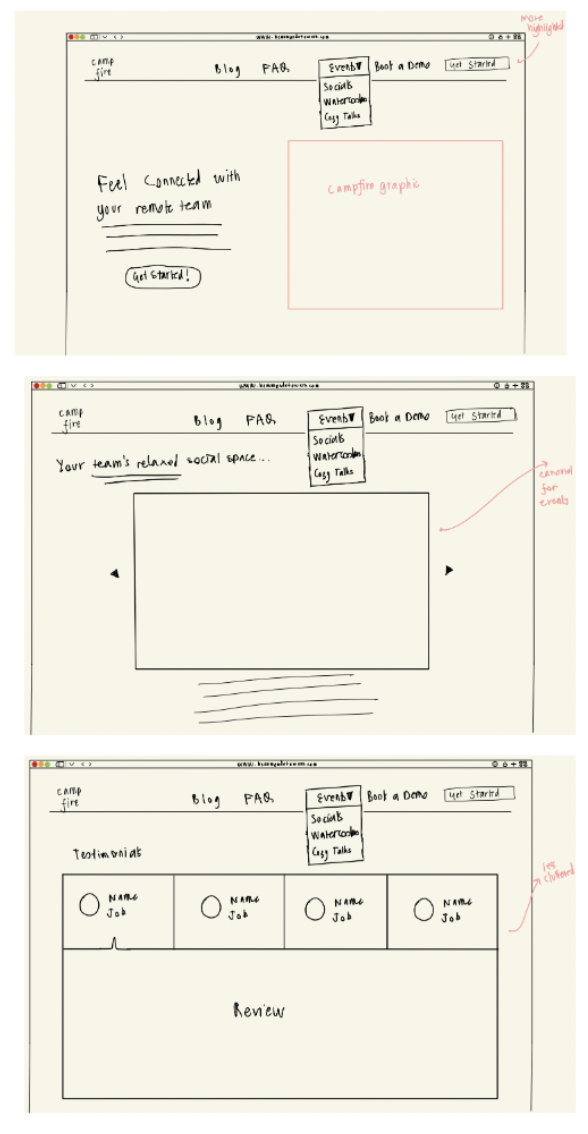 more
highlighted
camp
fire
Blog FAQ Events▼ Book a Demo Get Started
Socials
Watercooler
Cozy Talks
Feel Connected with
your remote team
Campfire graphic
Get Started!
camp
fire
Blog FAQ Events▼ Book a Demo Get Started
Socials
Watercooler
Cozy Talks
Your team's relaxed social space...
for
events
camp
fire
Blog FAQ Events▼ Book a Demo Get Started
Socials
Watercooler
Cozy Talks
Testimonials
less
cluttered
Name Name Name Name
Job Job Job Job
Review